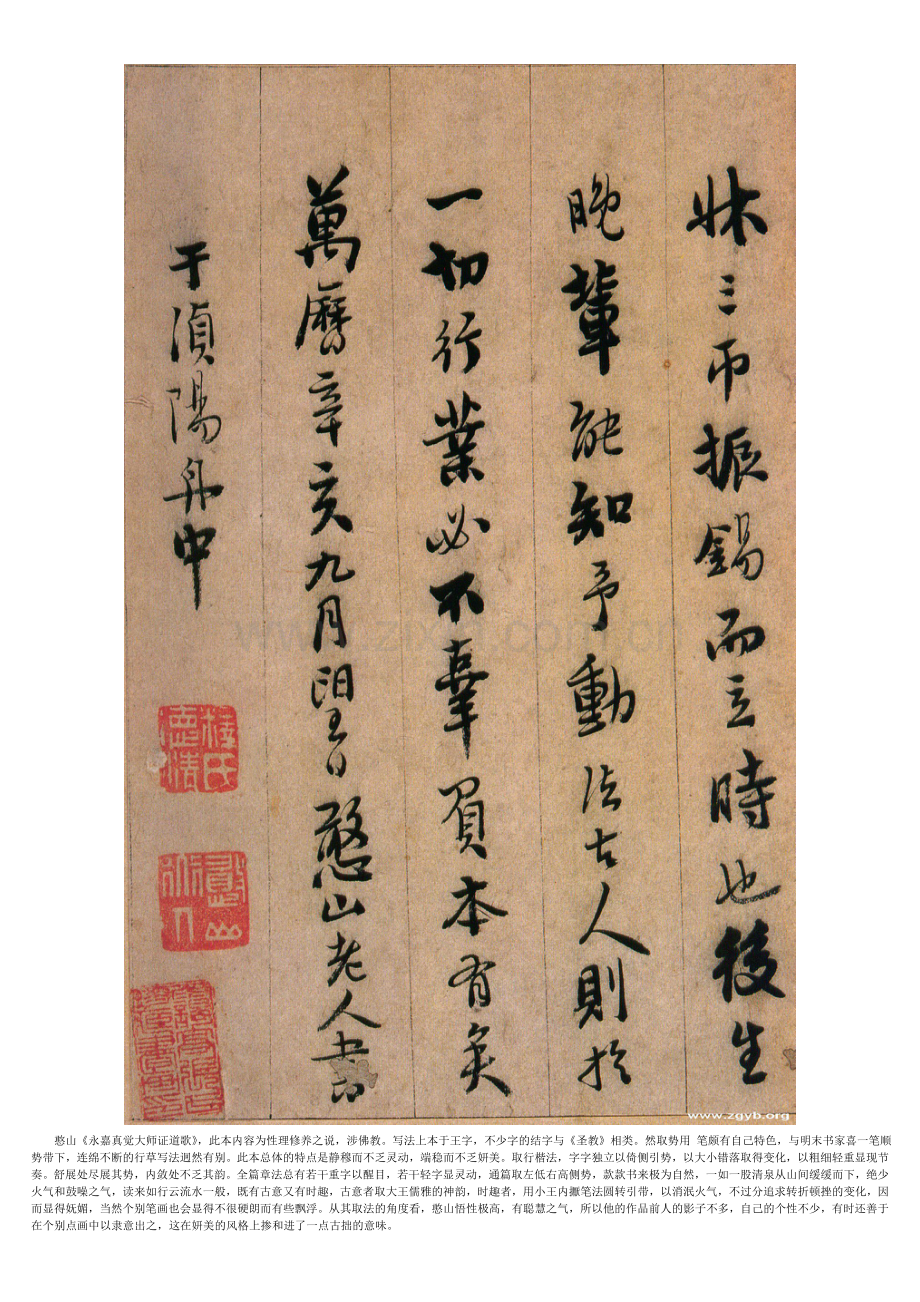 牀三帀振錫而立時也後生
晚輩能知予動法古人則於
一切行業必不辜負本有矣
萬曆辛亥九月望日憨山老人書
于湞陽舟中
www.zixin.com.cn
www.zgyb.com
憨山《永嘉真觉大师证道歌》，此本内容为性理修养之说，涉佛教。写法上本于王字，不少字的结字与《圣教》相类。然取势用 笔颇有自己特色，与明末书家喜一笔顺
势带下，连绵不断的行草写法迥然有别。此本总体的特点是静穆而不乏灵动，端稳而不乏妍美。取行楷法，字字独立以倚侧引势，以大小错落取得变化，以粗细轻重显现节
奏。舒展处尽展其势，内敛处不乏其韵。全篇章法总有若干重字以醒目，若干轻字显灵动，通篇取左低右高侧势，款款书来极为自然，一如一股清泉从山间缓缓而下，绝少
火气和鼓噪之气，读来如行云流水一般，既有古意又有时趣，古意者取大王儒雅的神韵，时趣者，用小王内擫笔法圆转引带，以消泯火气，不过分追求转折顿挫的变化，因
而显得妩媚，当然个别笔画也会显得不很硬朗而有些飘浮。从其取法的角度看，憨山悟性极高，有聪慧之气，所以他的作品前人的影子不多，自己的个性不少，有时还善于
在个别点画中以隶意出之，这在妍美的风格上掺和进了一点古拙的意味。